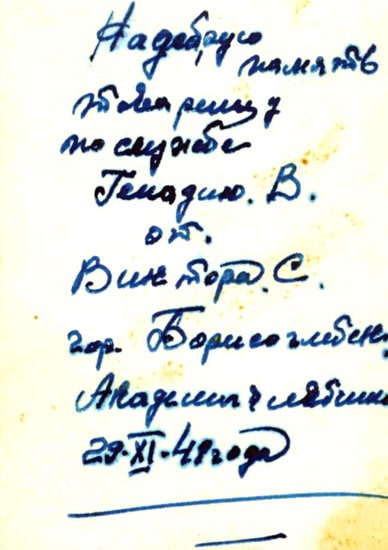 На добрую
память
товарищу
по службе
Генадию. В.
от.
Виктора. С.
гор. Борисоглебск.
29-XI-49 года